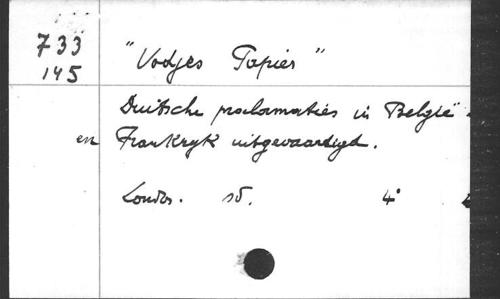 733
145
"Vodjes Papier"
Duitsche proclamaties in België
en Frankryk uitgevaardigd.
London. sd. 4°